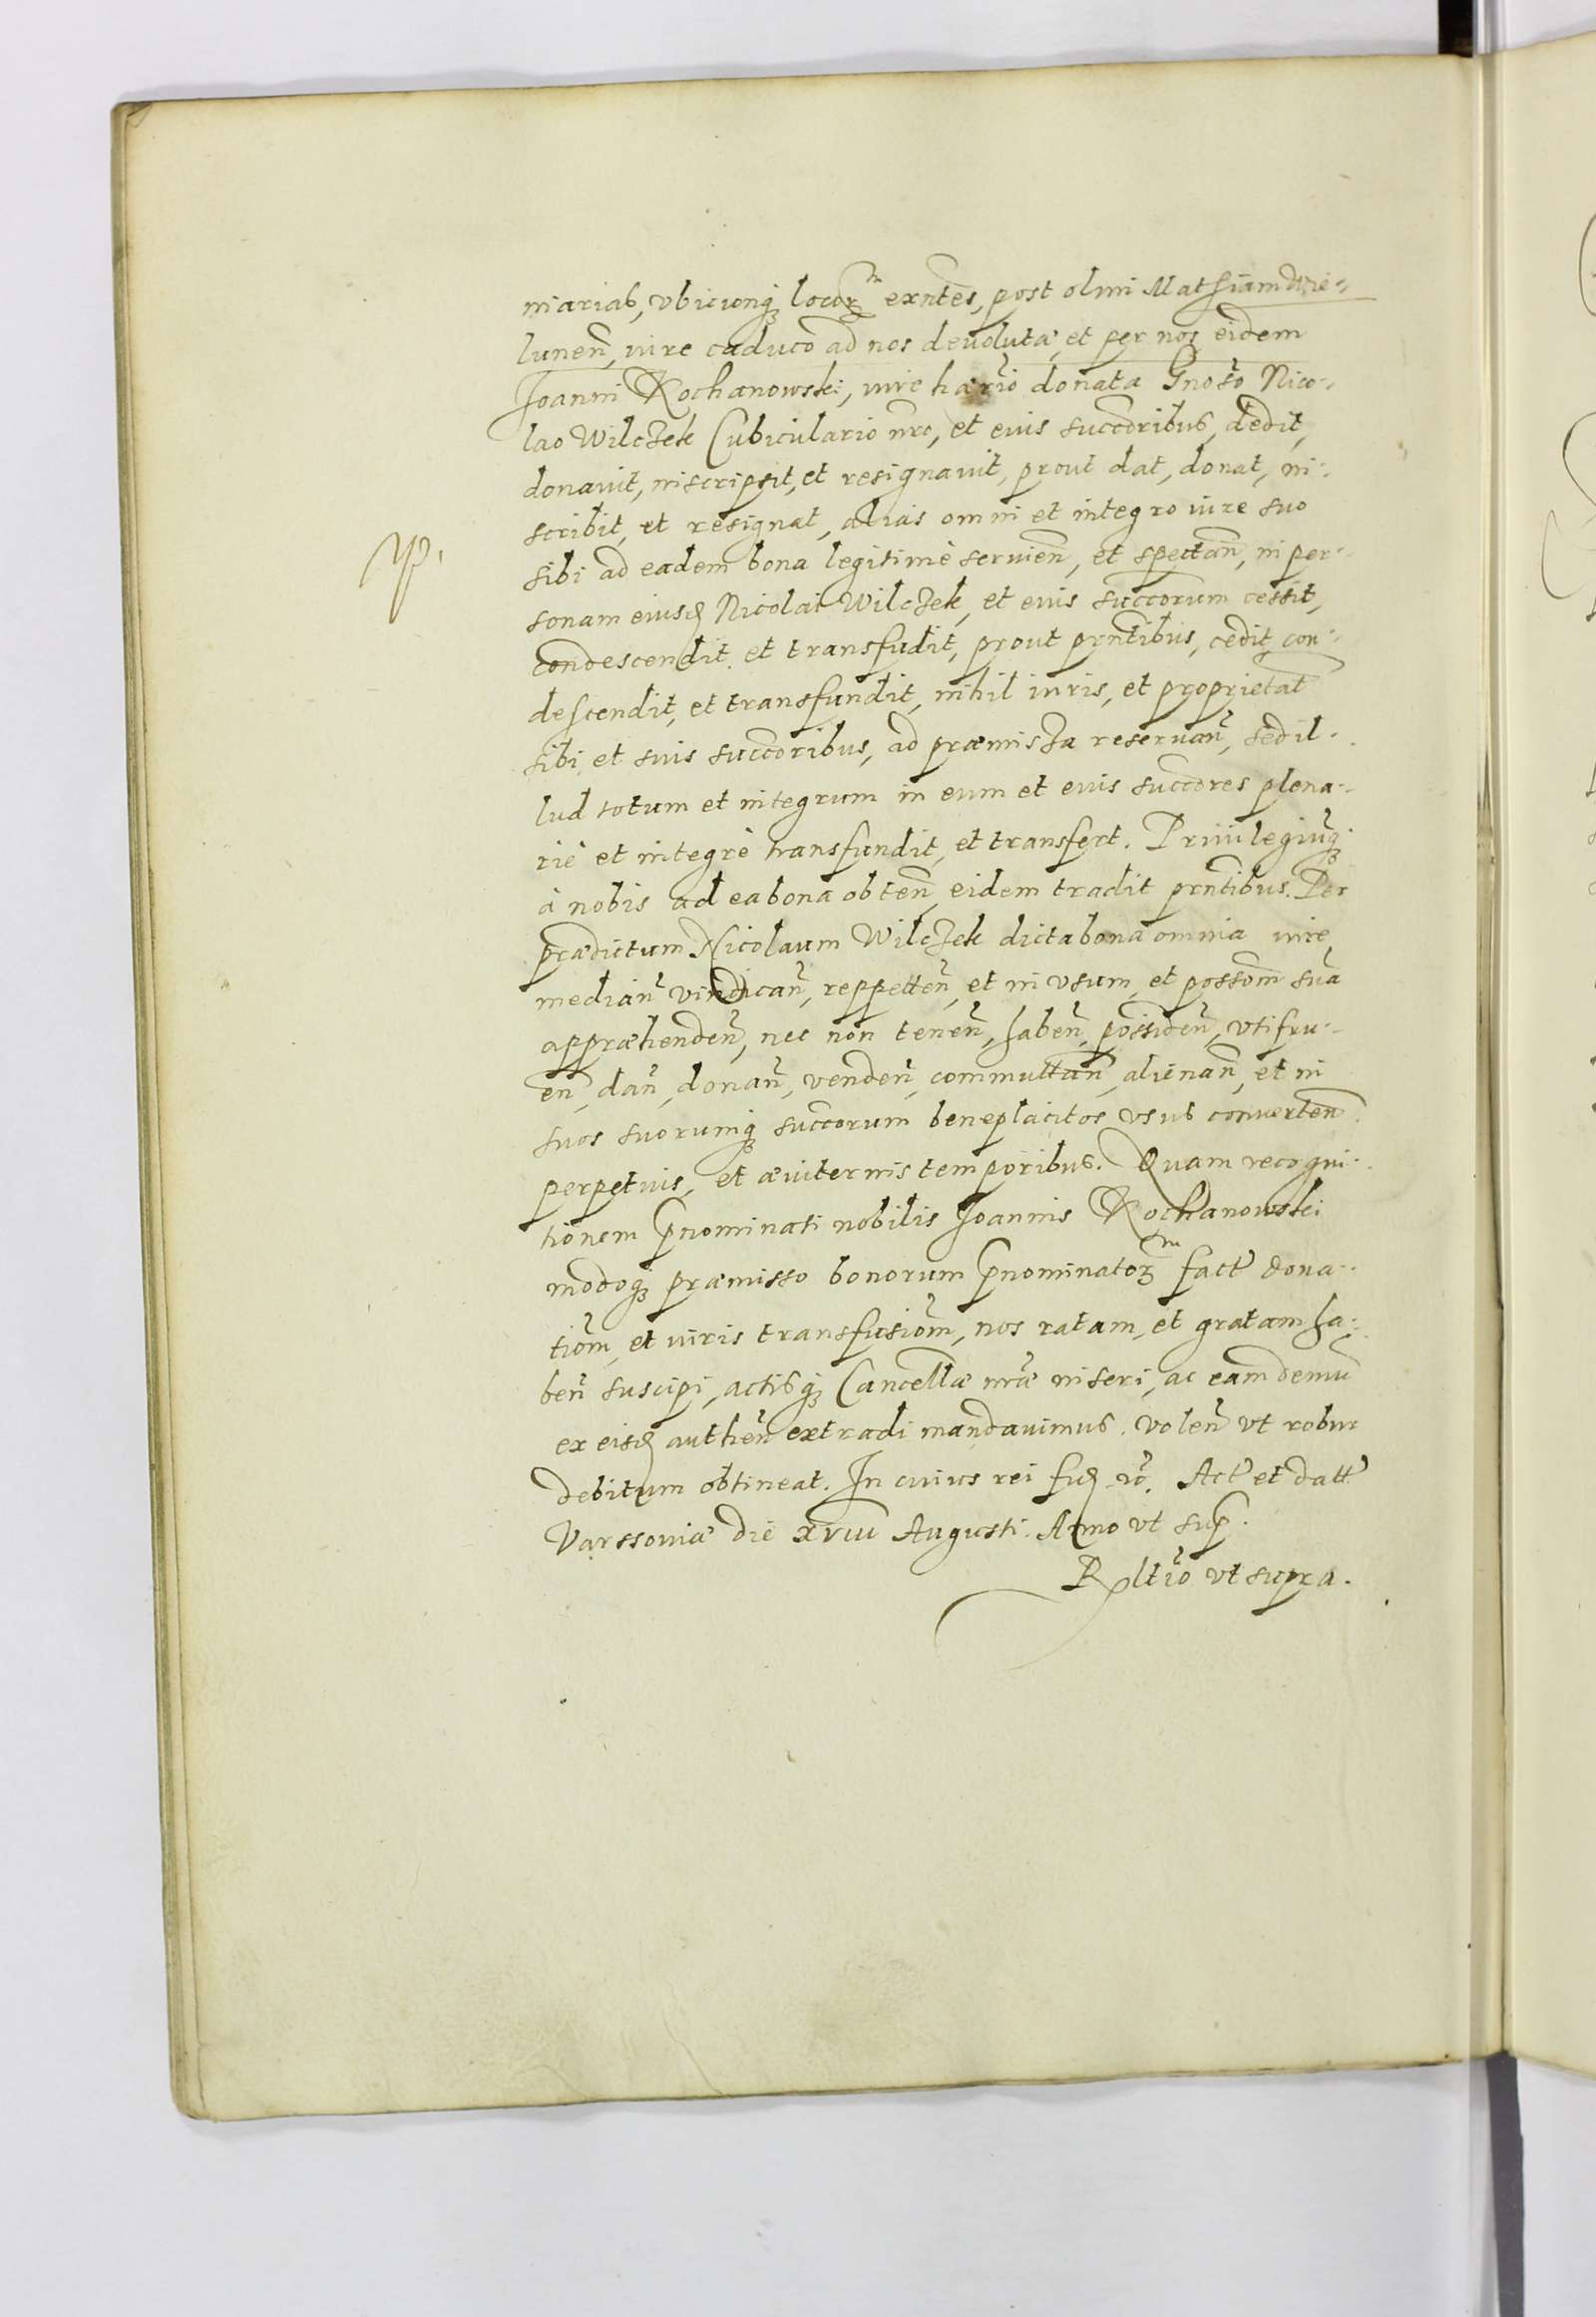 niarias, vbicunq; locor͂m exntēs, post olim Mathiam Wie-
lunen̄, iure caduco ad nos deuoluta, et per nos eidem
Joanni Kochanowski, iure hæriō donata Gnoso Nico-
lao Wilczek Cubiculario nrō, et eius succōribus, dedit,
donauit, inscripsit, et resignauit, prout dat, donat, in-
scribit, et resignat, alias omni et integro iure suo
sibi ad eadem bona legitimè seruien̄, et spectan̄, in per-
sonam eiusd Nicolai Wilczek, et eius succōrum cessit,
condescendit et transfudit, prout prntibus, cedit, con-
descendit, et transfundit, nihil iuris, et proprietat̄
sibi et suis succōribus, ad præmissa reseruan̄, sed il-
lud totum et integrum in eum et eius succōres plena-
riè et integrè transfundit, et transfert. Priuilegiūq;
à nobis ad ea bona obten̄, eidem tradit prntibus. Per
prædictum Nicolaum Wilczek dicta bona omnia iure
median̄ vindican̄, reppetten̄, et in vsum, et possōm suā
appræhenden̄, nec non tenen̄, haben̄, possiden̄, vtifru-
en̄, dan̄, donan̄, venden̄, commuttan̄, alienan̄, et in
suos suorumq; succōrum beneplacitos vsus conuerten̄.
perpetuis, et æuiternis temporibus. Quam recogni-
tionem p̄nominati nobilis Joannis Kochanowski
modoq; præmisso bonorum p̄nominator͂m fact̄ dona-
tiōm, et iuris transfusiōm, nos ratam, et gratam ha-
ben̄ suscipi, actisq; Cancellæ nr̄æ inseri, ac eam demū
ex eisd authen̄ extradi mandauimus. Volen̄ vt robur
debitum obtineat. In cuius rei fid etc̄. Act̄ et datt̄
Varssouiæ die xviii Augusti. Anno vt sup̄.
Rltiō vt supra.